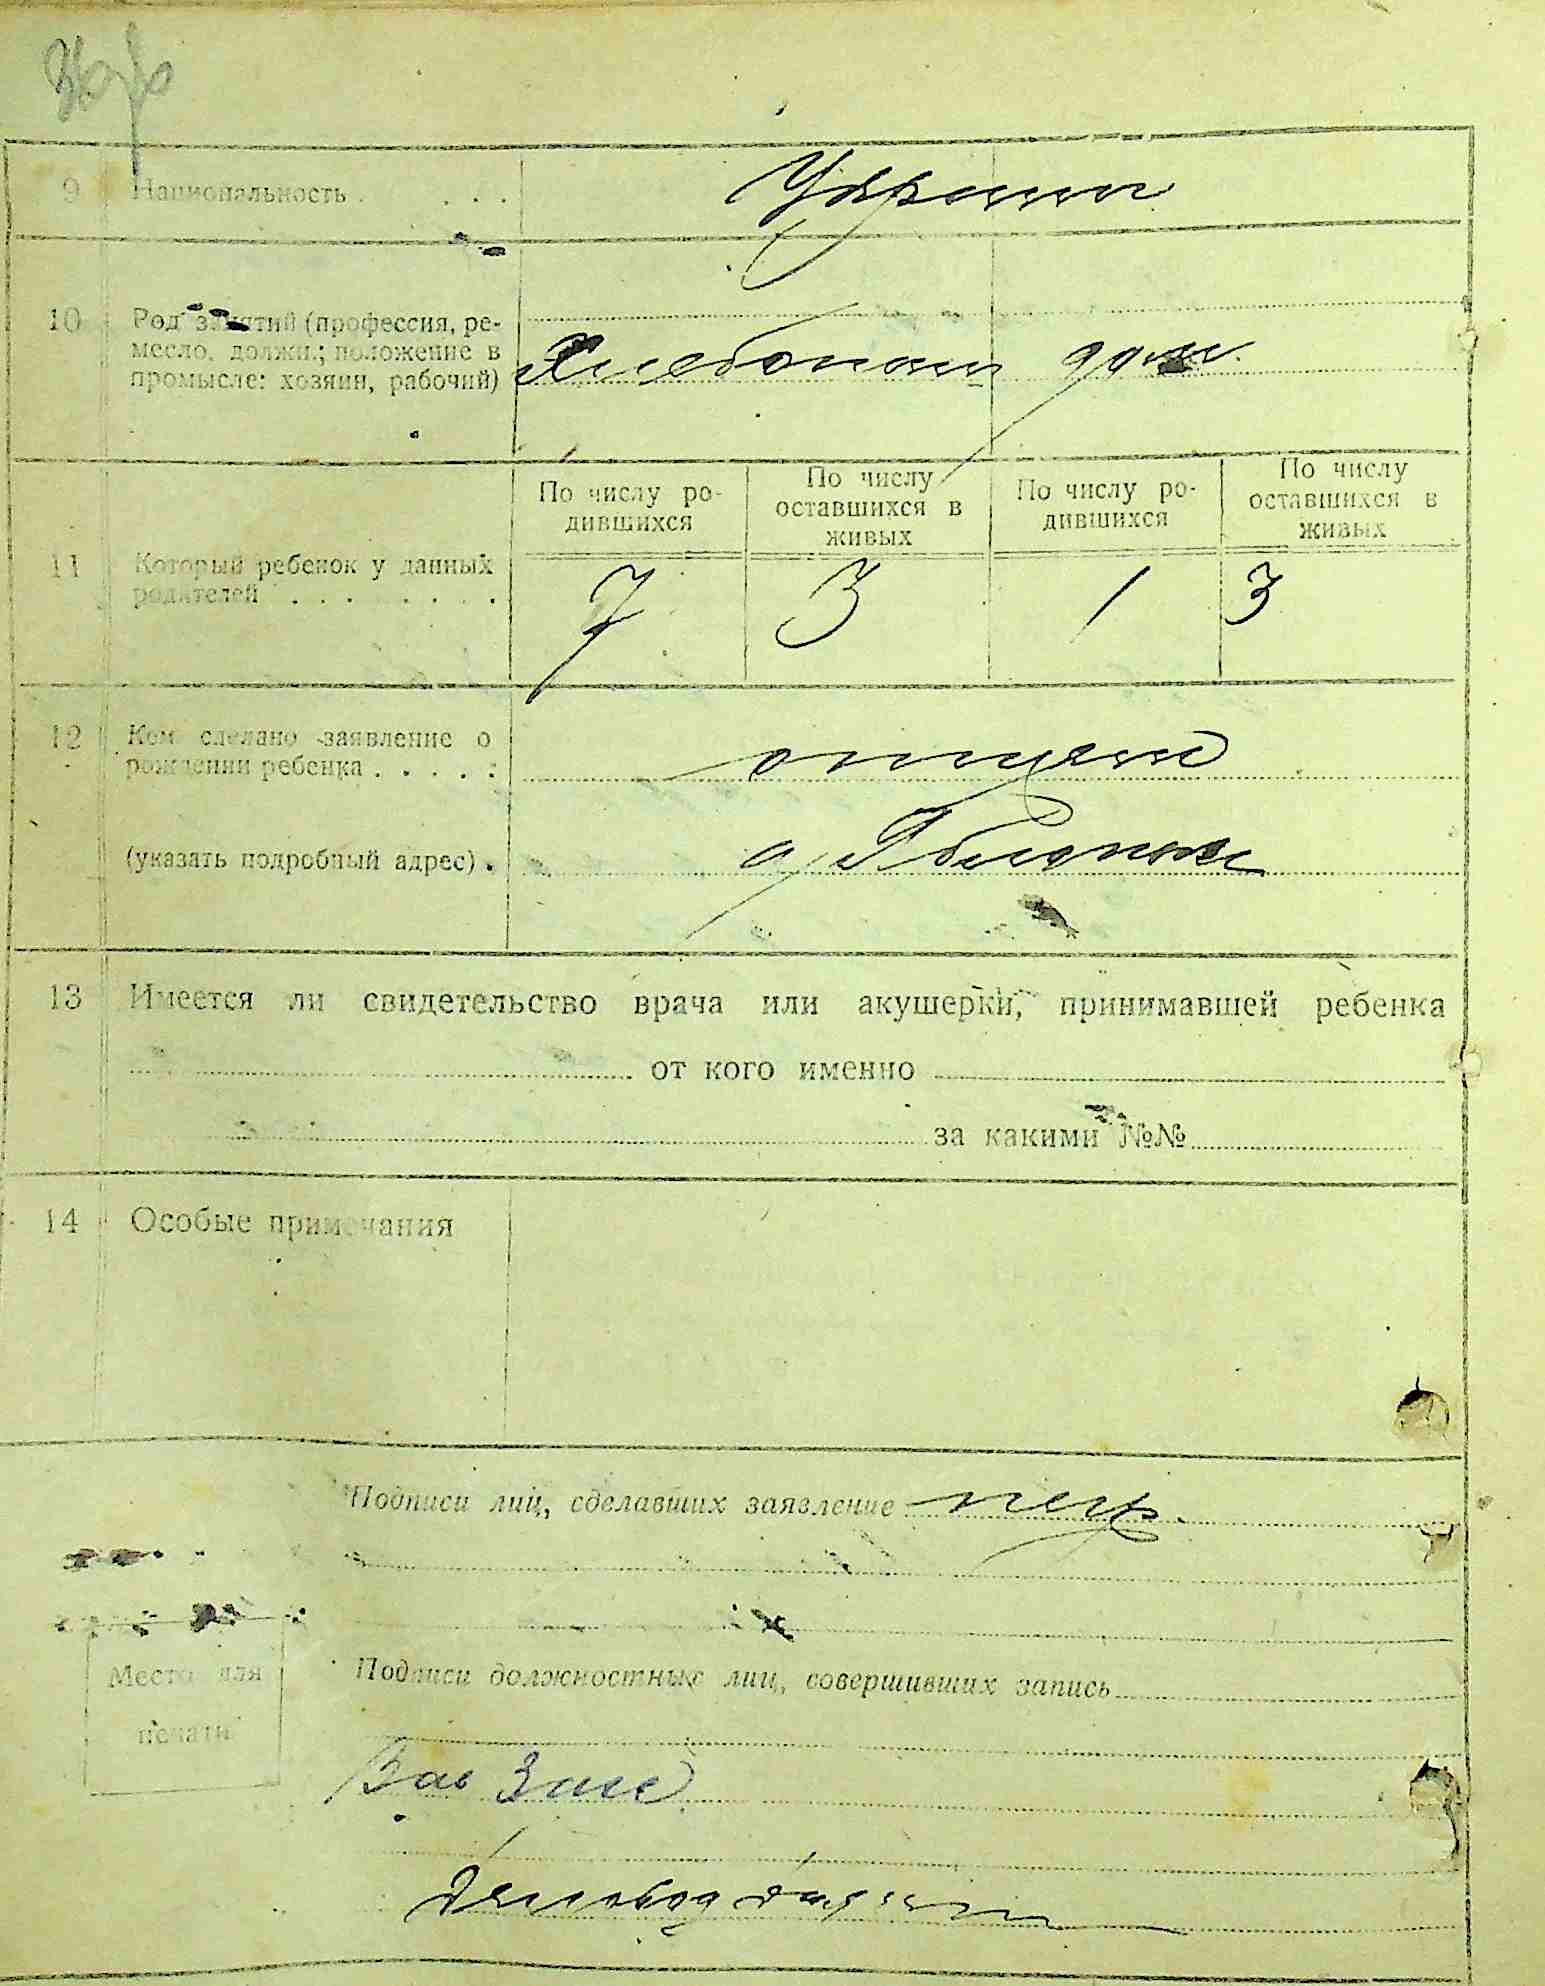 9 Национальность . . . . Украинц
10 Род занятий (профессия, ре-
месло, должн.; положение в
промысле: хозяин, рабочий) Хлебопаш дом.
По числу ро-
дившихся
По числу
оставшихся в
живых
По числу ро-
дившихся
По числу
оставшихся в
живых
11 Который ребенок у данных
родителей . . . . . . . 7 3 / 3
12 Кем сделано заявление о
рождении ребенка . . . . . отцем
(указать подробный адрес) .
13 Имеется ли свидетельство врача или акушерки, принимавшей ребенка
от кого именно
за какими №№
14 Особые примечания
Подписи лиц, сделавших заявление негр.
Место для
печати
Подписи должностных лиц, совершивших запись
Зав Загс
Деловод